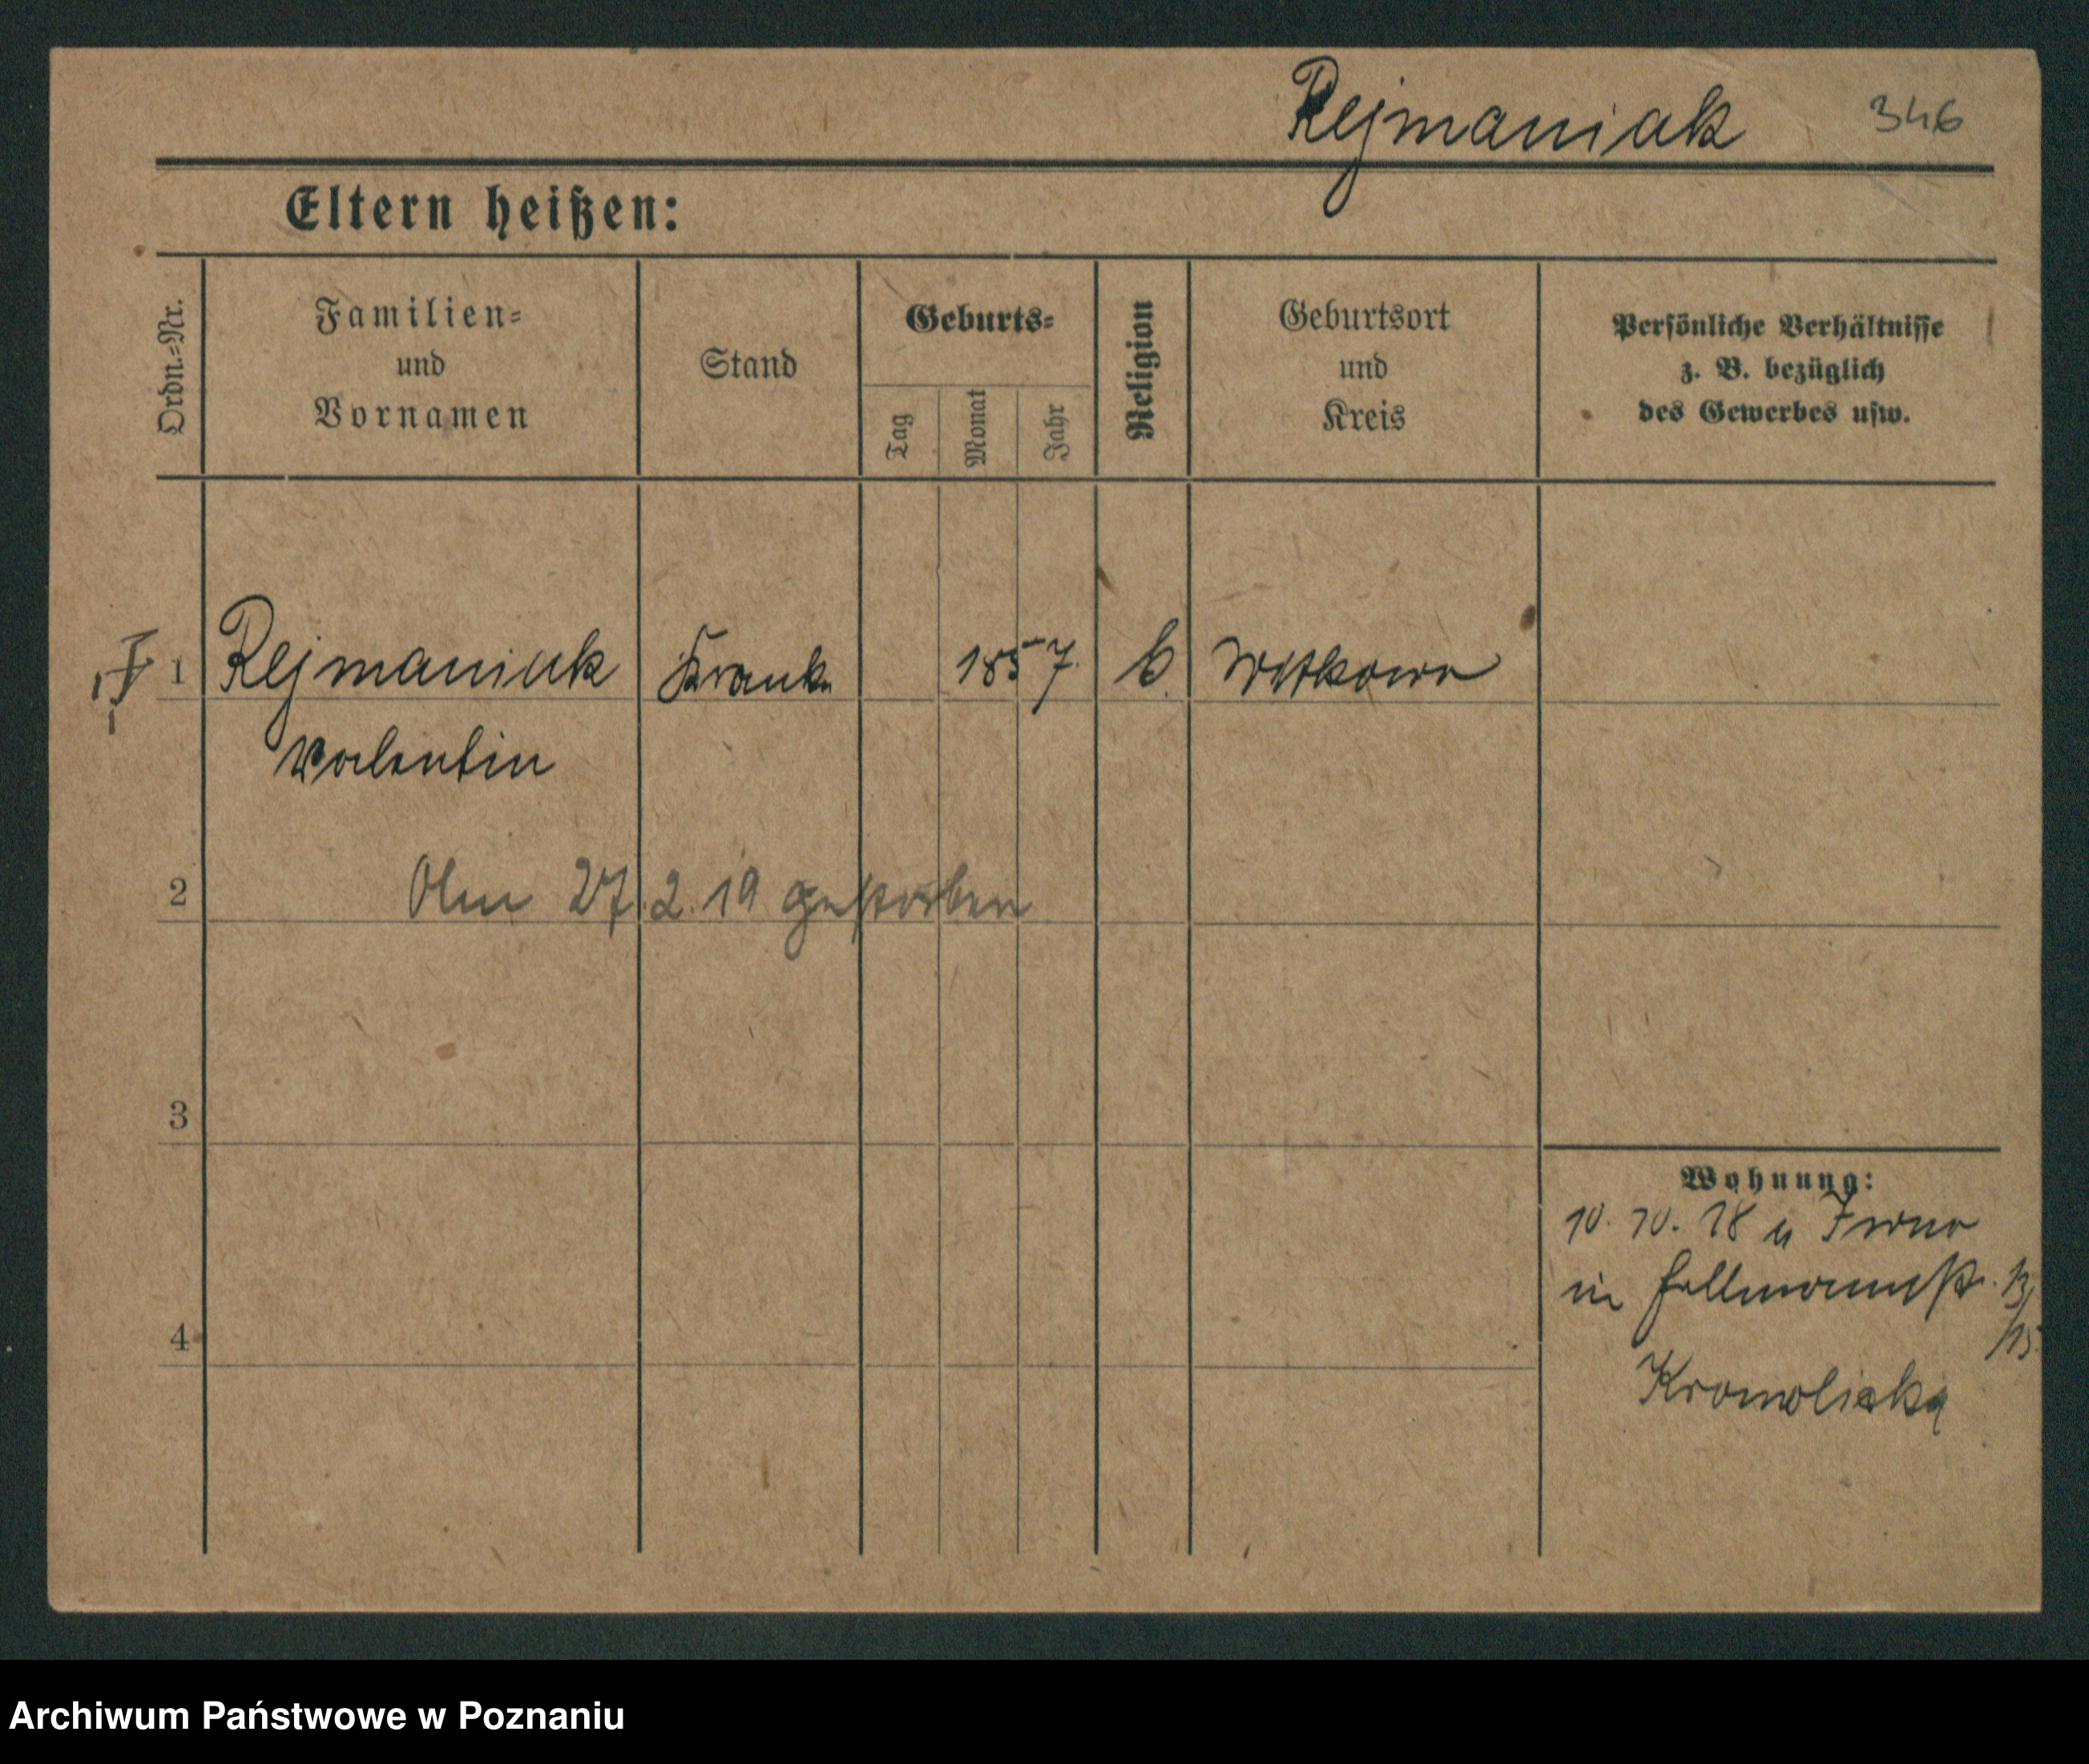 Rejmaniak 346
Eltern heißen:
Ordn.-Nr.
Familien-
und
Vornamen
Stand
Geburts-
Tag
Monat
Jahr
Religion
Geburtsort
und
Kreis
Persönliche Verhältnisse
z. B. bezüglich
des Gewerbes usw.
1 Rejmaniak Krank. 1857. Witkowo
Valentin
2 Am 27.2.19 gestorben
3
4
Wohnung:
10. 10. 18
in
Archiwum Państwowe w Poznaniu